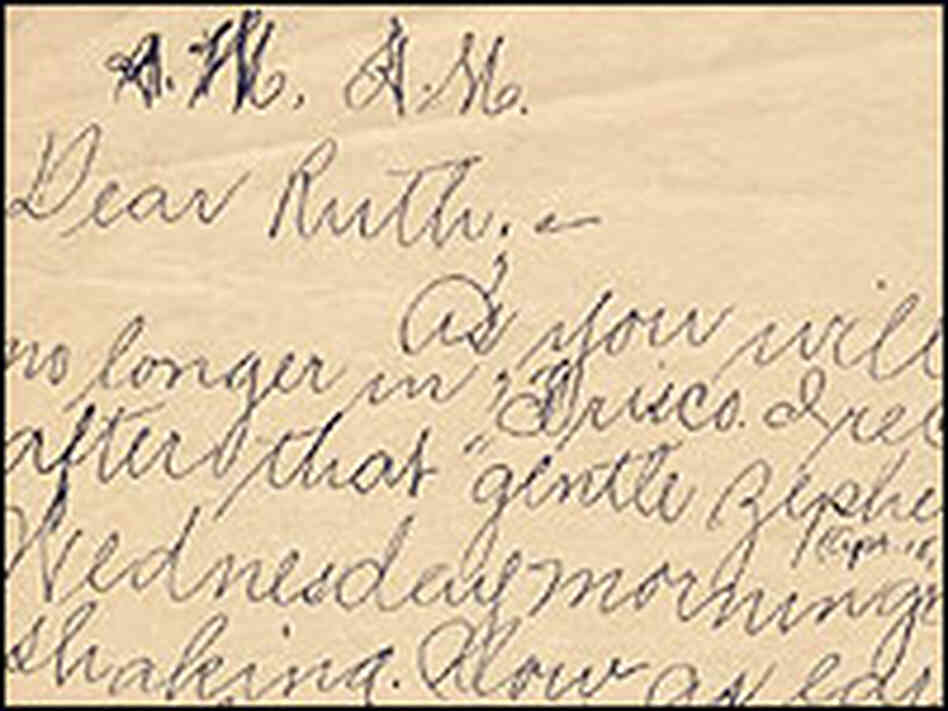 A.M. A.M.
Dear Ruth; —
As you will
no longer in 'Frisco. I rec
after that "gentle zephe
(Apr. 18,
Wednesday morning
shaking. Now as ear